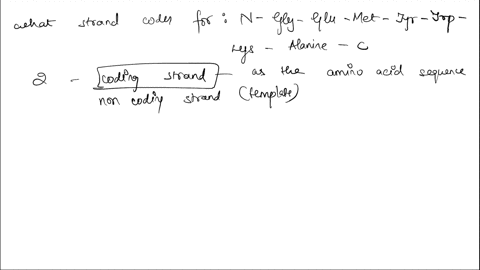 what strand codes for: N - Gly - Glu - Met - Tyr - Trp -
Lys - Alanine - C
2 - coding strand - as the amino acid sequence
non coding strand (template)